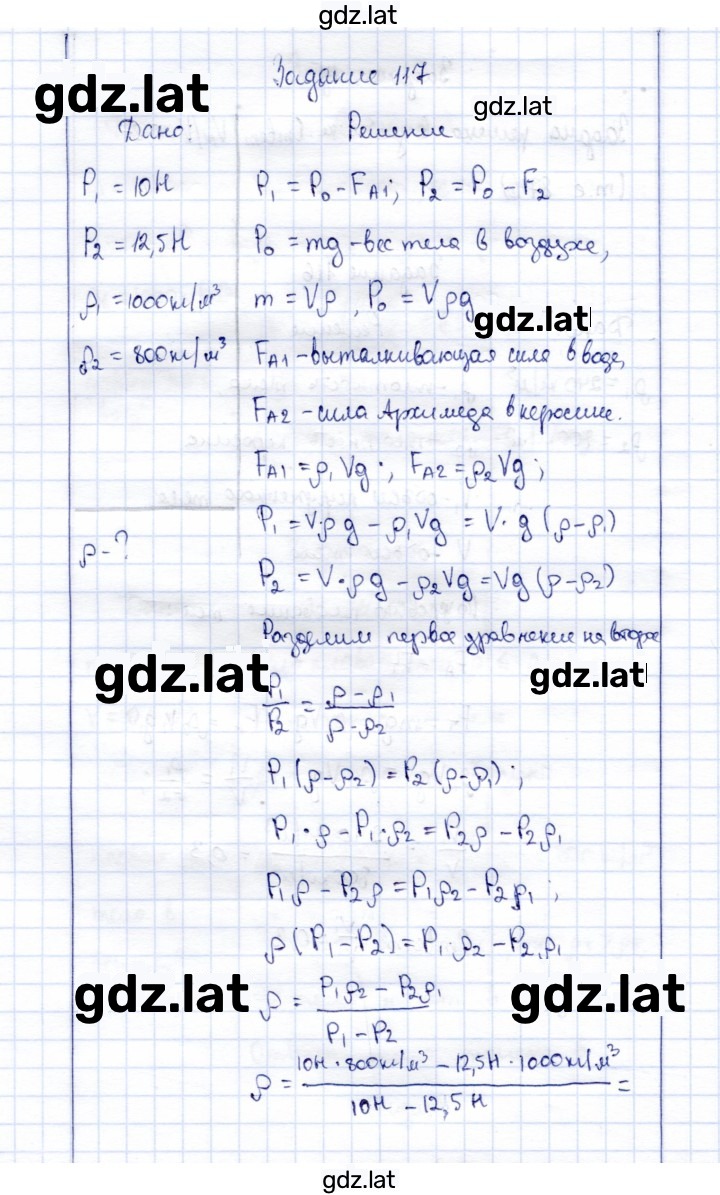 gdz.lat
Задание 117
gdz.lat
gdz.lat
Дано: Решение
P₁ = 10Н P₁ = P₀ - F_A1; P₂ = P₀ - F₂
P₂ = 12,5Н P₀ = mg - вес тела в воздухе,
ρ₁ = 1000кг/м³ m = Vρ, P₀ = Vρg
gdz.lat
ρ₂ = 800кг/м³ F_A1 - выталкивающая сила в воде,
F_A2 - сила Архимеда в керосине.
F_A1 = ρ₁Vg; F_A2 = ρ₂Vg;
P₁ = V·ρg - ρ₁Vg = V·g(ρ-ρ₁)
ρ - ?
P₂ = V·ρg - ρ₂Vg = Vg(ρ-ρ₂)
Разделим первое уравнение на второе
gdz.lat gdz.lat
P₁/P₂ = (ρ-ρ₁)/(ρ-ρ₂)
P₁(ρ-ρ₂) = P₂(ρ-ρ₁);
P₁·ρ - P₁·ρ₂ = P₂ρ - P₂ρ₁
P₁ρ - P₂ρ = P₁ρ₂ - P₂ρ₁;
ρ(P₁-P₂) = P₁·ρ₂ - P₂·ρ₁
gdz.lat gdz.lat
ρ = (P₁ρ₂ - P₂ρ₁)/(P₁ - P₂)
ρ = (10Н·800кг/м³ - 12,5Н·1000кг/м³)/(10Н - 12,5Н) =
gdz.lat